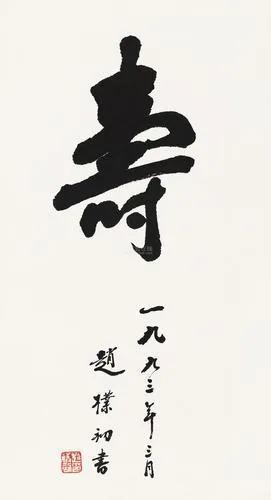 壽
一九九三年三月
趙樸初書